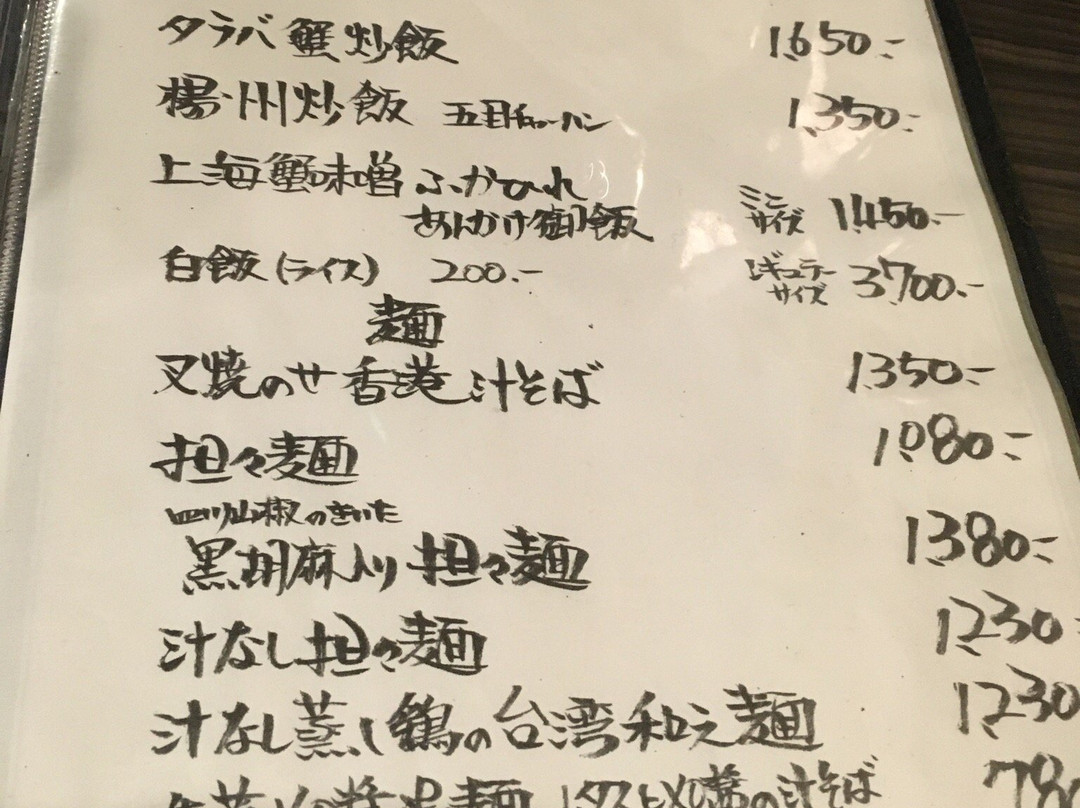 タラバ蟹炒飯 1,650.-
楊州炒飯 五目チャーハン 1,350.-
上海蟹味噌 ふかひれ
あんかけ御飯 ミニサイズ 1,450.-
白飯(ライス) 200.- レギュラーサイズ 3,700.-
麺
叉焼のせ香港汁そば 1,350.-
担々麺 1,080.-
四川山椒のきいた
黒胡麻入り担々麺 1,380.-
汁なし担々麺 1,230
汁なし蒸し鶏の台湾和え麺 1,230
の汁そば 780